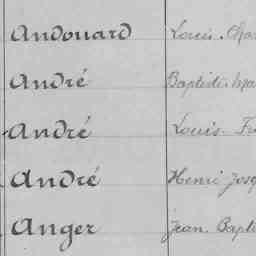 Andouard Louis. Cha
André Baptiste. Ma
André Louis. Fr
André Henri Jose
Anger Jean. Bapti